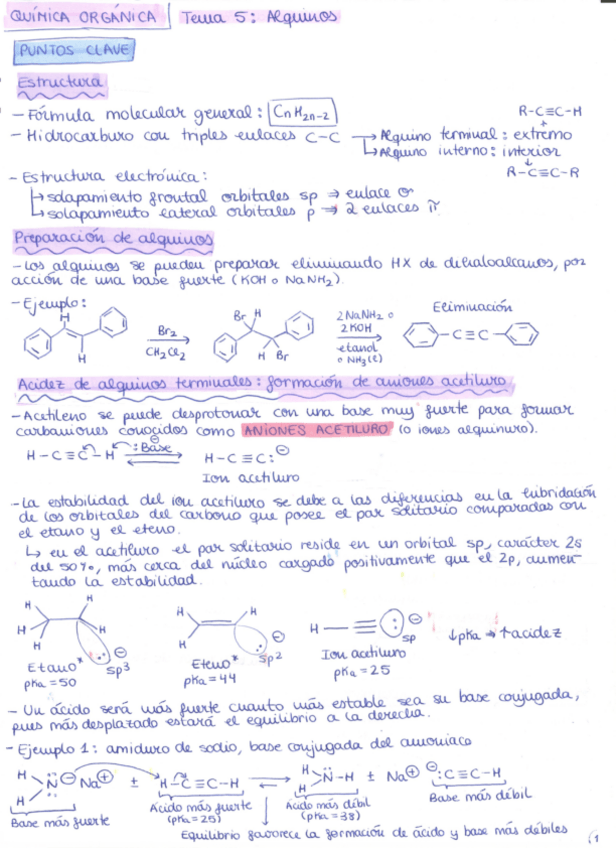 QUÍMICA ORGÁNICA Tema 5: Alquinos
PUNTOS CLAVE
Estructura
- Fórmula molecular general: CnH2n-2
R-C≡C-H
- Hidrocarburo con triples enlaces C-C → Alquino terminal: extremo
↳ Alquino interno: interior
R-C≡C-R
- Estructura electrónica:
↳ solapamiento frontal orbitales sp ⇒ enlace σ
↳ solapamiento lateral orbitales p ⇒ 2 enlaces π
Preparación de alquinos
- Los alquinos se pueden preparar eliminando HX de dihaloalcanos, por
acción de una base fuerte (KOH o NaNH2).
- Ejemplo:
H
H
Br2
CH2Cl2
Br H
H Br
2NaNH2 o
2KOH
etanol
o NH3(l)
Eliminación
-C≡C-
Acidez de alquinos terminales: formación de aniones acetiluro
- Acetileno se puede desprotonar con una base muy fuerte para formar
carbaniones conocidos como ANIONES ACETILURO (o iones alquinuro).
H-C≡C-H :Base⊖ H-C≡C:⊖
Ion acetiluro
- La estabilidad del ion acetiluro se debe a las diferencias en la hibridación
de los orbitales del carbono que posee el par solitario comparadas con
el etano y el eteno.
↳ en el acetiluro el par solitario reside en un orbital sp, carácter 2s
del 50%, más cerca del núcleo cargado positivamente que el 2p, aumen-
tando la estabilidad.
H H H H H ⊖ sp3
Etano*
pKa = 50
H H H ⊖ sp2
Eteno*
pKa = 44
H-≡ : ⊖ sp
Ion acetiluro
pKa = 25
↓pKa → ↑acidez
- Un ácido será más fuerte cuanto más estable sea su base conjugada,
pues más desplazado estará el equilibrio a la derecha.
- Ejemplo 1: amiduro de sodio, base conjugada del amoniaco
H H N⊖ Na⊕ ± H-C≡C-H ⇌ H H N-H ± Na⊕ ⊖:C≡C-H
Base más fuerte
Ácido más fuerte
(pKa=25)
Ácido más débil
(pKa=38)
Base más débil
Equilibrio favorece la formación de ácido y base más débiles
1